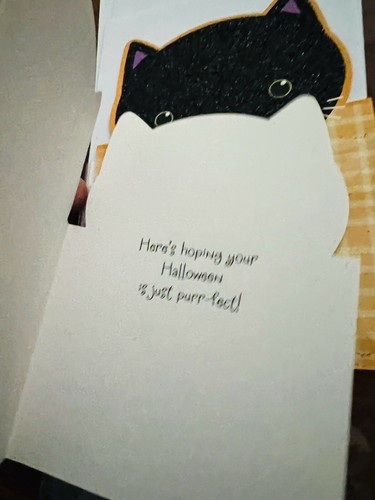 Here's hoping your
Halloween
is just purr-fect!